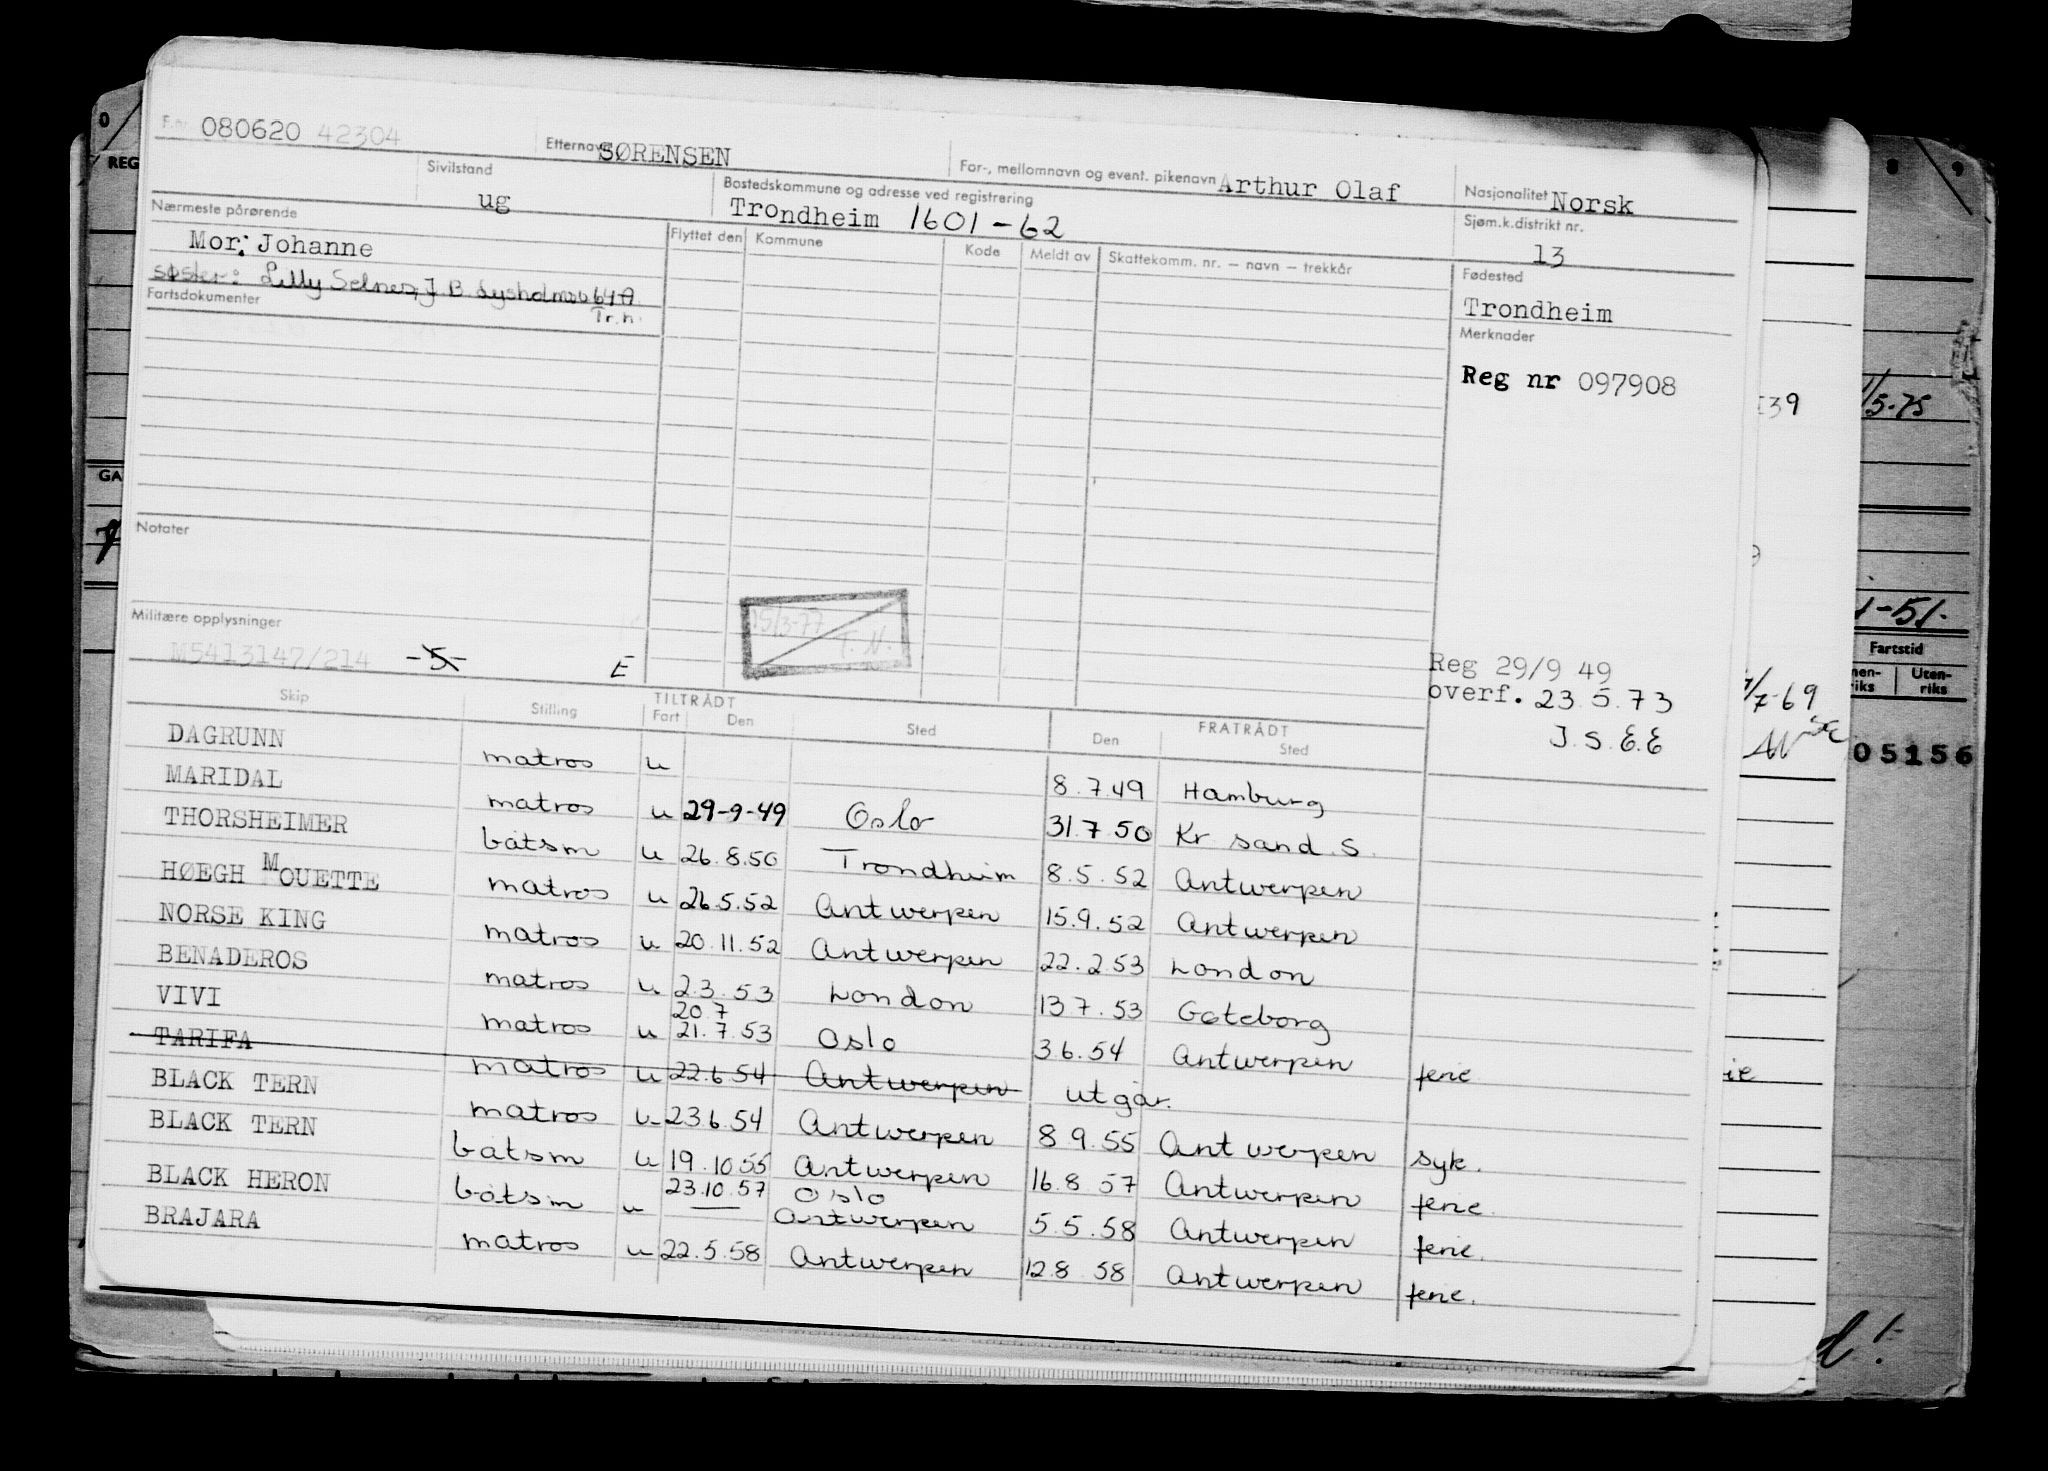 F.nr. 080620 42304 Etternavn SØRENSEN For-, mellomnavn og event. pikenavn Arthur Olaf Nasjonalitet Norsk
Sivilstand ug Bostedskommune og adresse ved registrering Trondheim 1601-62 Sjøm.k.distrikt nr. 13
Nærmeste pårørende Flyttet den Kommune Kode Meldt av Skattekomm. nr. – navn – trekkår Fødested
Mor: Johanne
søster: Lilly Selnes, J. B. Lysholmsv 64A Tr.h.
Trondheim
Fartsdokumenter
Merknader
Reg nr 097908
Notater
Militære opplysninger
15/3-77 T. N.
M5413147/214 -5- E
Reg 29/9 49
overf. 23.5.73
J.S.E.E
Skip Stilling TILTRÅDT Fart Den Sted FRATRÅDT Den Sted
DAGRUNN matros u 8.7.49 Hamburg
MARIDAL matros u 29-9-49 Oslo 31.7.50 Kr sand.S.
THORSHEIMER båtsm u 26.8.50 Trondheim 8.5.52 Antwerpen
HØEGH MOUETTE matros u 26.5.52 Antwerpen 15.9.52 Antwerpen
NORSE KING matros u 20.11.52 Antwerpen 22.2.53 London
BENADEROS matros u 2.3.53 London 13.7.53 Gøteborg
VIVI matros u 20.7 21.7.53 Oslo 3.6.54 Antwerpen ferie
TARIFA matros u 22.6.54 Antwerpen utgår.
BLACK TERN matros u 23.6.54 Antwerpen 8.9.55 Antwerpen syk.
BLACK TERN båtsm u 19.10.55 Antwerpen 16.8.57 Antwerpen ferie
BLACK HERON båtsm u 23.10.57 Oslo — Antwerpen 5.5.58 Antwerpen ferie.
BRAJARA matros u 22.5.58 Antwerpen 12.8.58 Antwerpen ferie.
0
REG
GA
8 9
139
/5-75
1-51.
Fartstid
Uten-
riks
/7-69
05156